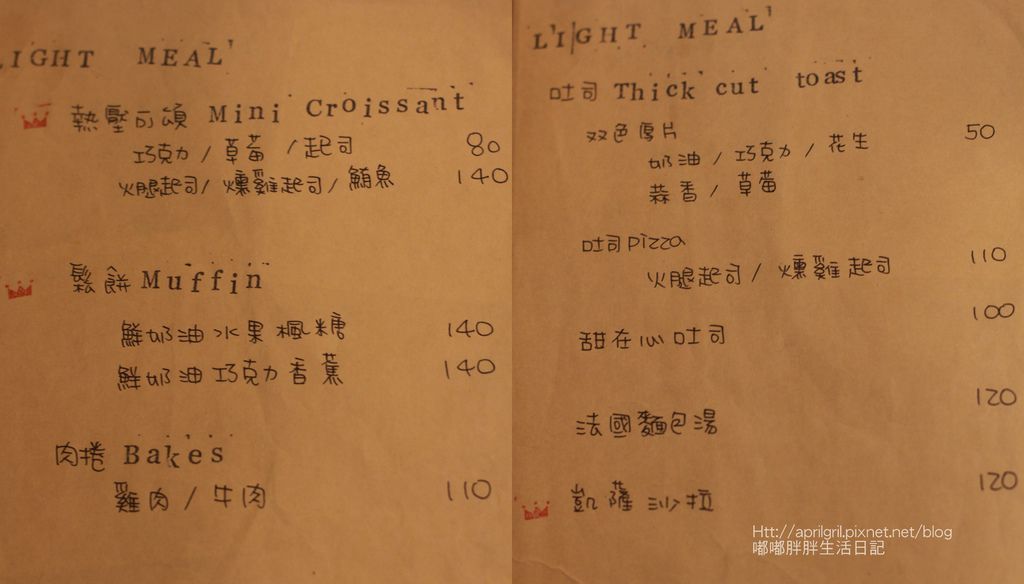 LIGHT MEAL'
熱壓可頌 Mini Croissant
巧克力 / 草莓 / 起司 80
火腿起司 / 燻雞起司 / 鮪魚 140
鬆餅 Muffin
鮮奶油水果楓糖 140
鮮奶油巧克力香蕉 140
肉捲 Bakes
雞肉 / 牛肉 110
L'IGHT MEAL'
吐司 Thick cut toast
双色厚片 50
奶油 / 巧克力 / 花生
蒜香 / 草莓
吐司pizza
火腿起司 / 燻雞起司 110
甜在心吐司 100
法國麵包湯 120
凱薩沙拉 120
Htt://aprilgril.pixnet.net/blog
嘟嘟胖胖生活日記